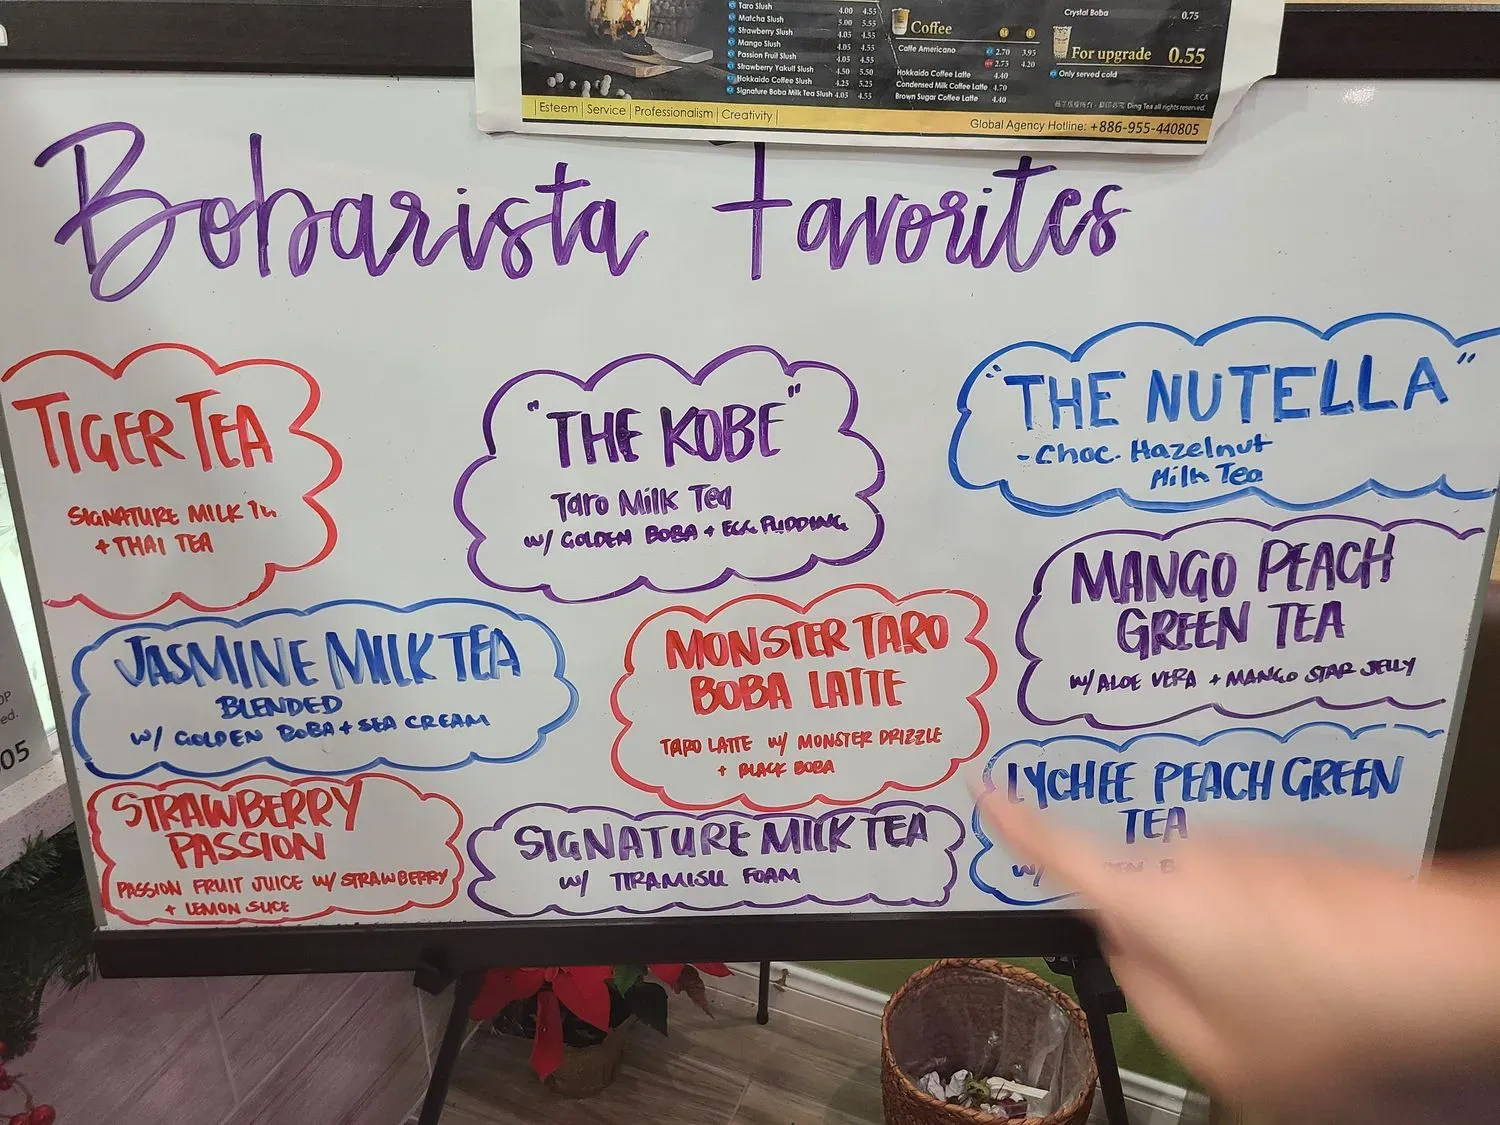 Taro Slush 4.00 4.55
Matcha Slush 5.00 5.55
Strawberry Slush 4.05 4.55
Mango Slush 4.05 4.55
Passion Fruit Slush 4.05 4.55
Strawberry Yakult Slush 4.50 5.50
Hokkaido Coffee Slush 4.25 5.25
Signature Boba Milk Tea Slush 4.05 4.55
Coffee M L
Caffe Americano 2.70 3.95
2.75 4.20
Hokkaido Coffee Latte 4.40
Condensed Milk Coffee Latte 4.70
Brown Sugar Coffee Latte 4.40
Crystal Boba 0.75
For upgrade 0.55
Only served cold
美CA
Ding Tea all rights reserved.
Esteem | Service | Professionalism | Creativity |
Global Agency Hotline: +886-955-440805
Bobarista Favorites
TIGER TEA
SIGNATURE MILK
+ THAI TEA
"THE KOBE"
Taro Milk Tea
w/ GOLDEN BOBA + EGG PUDDING
"THE NUTELLA"
- Choc. Hazelnut
Milk Tea
MANGO PEACH
GREEN TEA
w/ ALOE VERA + MANGO STAR JELLY
JASMINE MILK TEA
BLENDED
w/ GOLDEN BOBA + SEA CREAM
MONSTER TARO
BOBA LATTE
TARO LATTE w/ MONSTER DRIZZLE
+ BLACK BOBA
LYCHEE PEACH GREEN
TEA
w/
STRAWBERRY
PASSION
PASSION FRUIT JUICE w/ STRAWBERRY
+ LEMON SLICE
SIGNATURE MILK TEA
w/ TIRAMISU FOAM
OP
ed.
05